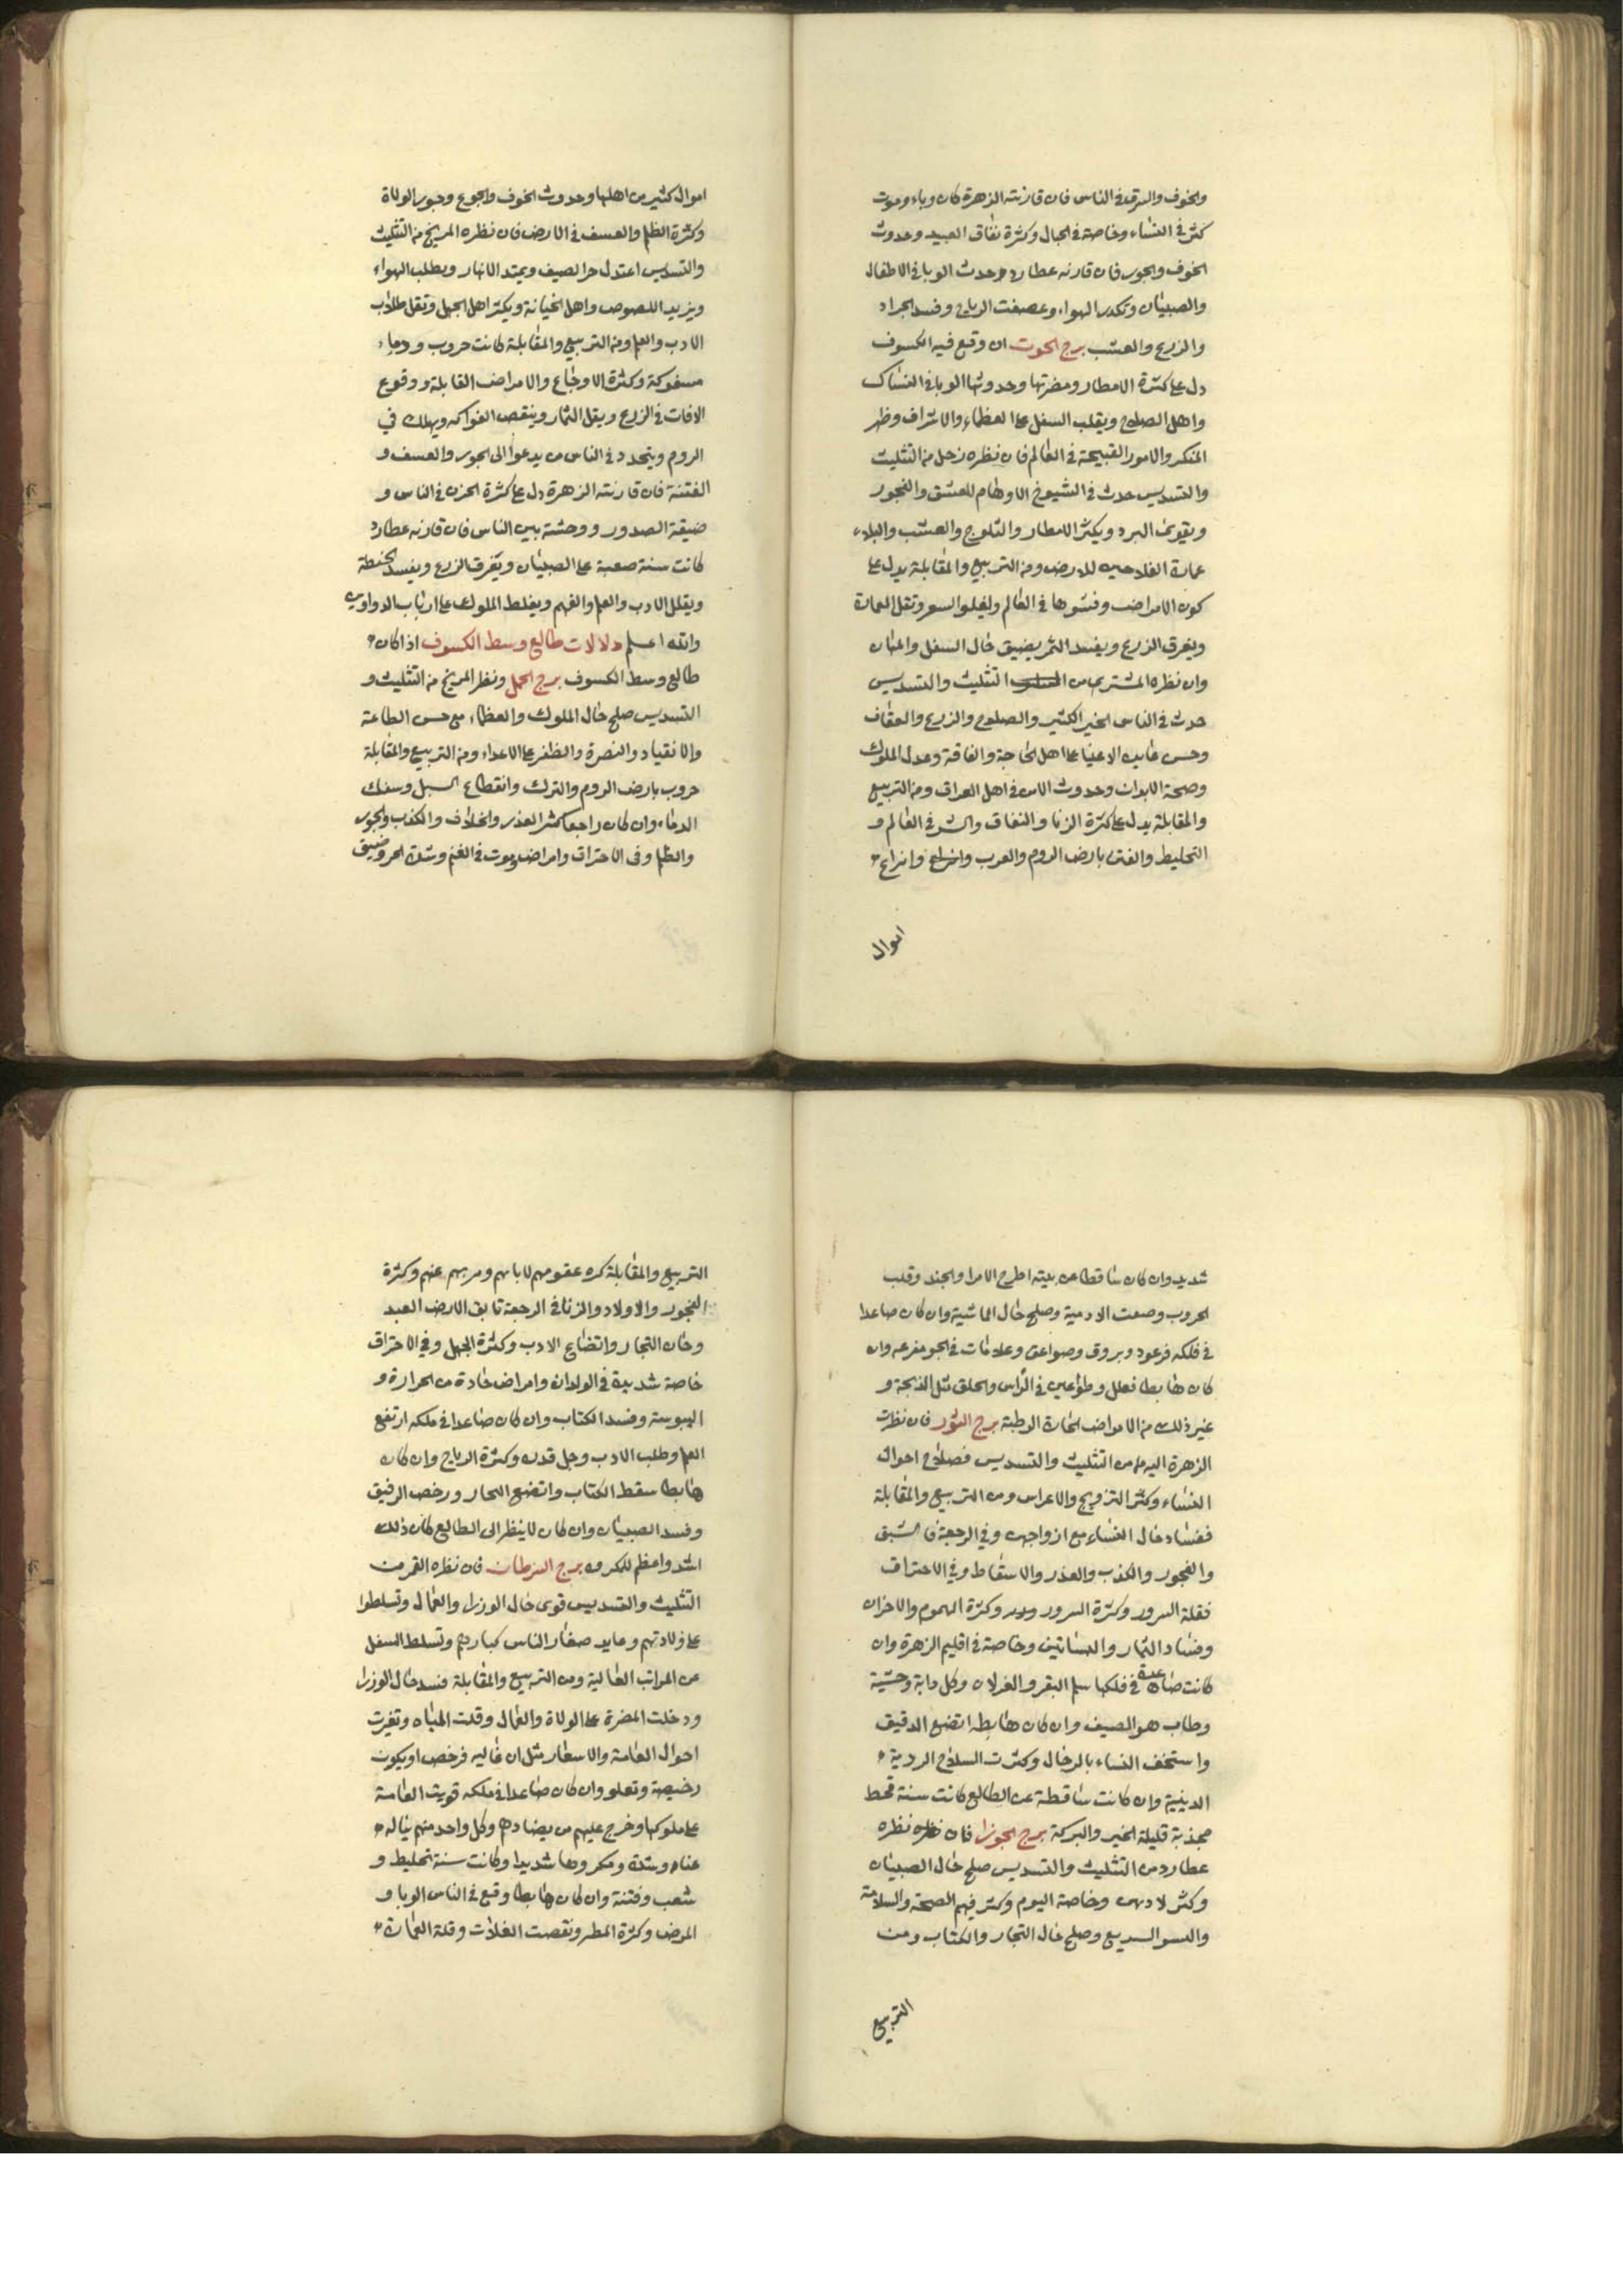 والخوف والسرقة في الناس فان قارنته الزهرة كان وباء وموت
كثر في النساء وخاصة في الجبال وكثرة نفاق العبيد وحدوث
الخوف والجور فان قارنه عطارد وحدث الوبا في الاطفال
والصبيان وتكدر الهواء وعصفت الرياح وفسد الجراد
والزرع والعشب برج الحوت ان وقع فيه الكسوف
دل على كثرة الامطار ومضرتها وحدوثها الوبا في النساك
واهل الصلاح ويقلب السفل على العظماء والاشراف وظهر
المنكر والامور القبيحة في العالم فان نظره زحل من التثليث
والتسديس حدث في الشيوخ الاوهام للعشق والفجور
ويقوى البرد ويكثر الامطار والثلوج والعشب والبلاء
عمارة الفلاحين للارض ومن التربيع والمقابلة يدل على
كون الامراض وفشوها في العالم ولغلوا السعر وتقل العمارة
ويغرق الزرع ويفسد الثمر يضيق حال السفل والمهان
وان نظره المشتري من التثليث والتسديس
حدث في الناس الخير الكثير والصلوح والزرع والعفاف
وحسن الاغنيا على اهل الحاجة والفاقة وعدل الملوك
وصحة الابدان وحدوث الامن في اهل العراق ومن التربيع
والمقابلة يدل على كثرة الزنا والنفاق والشر في العالم و
التخليط والفتن بارض الروم والعرب وانزاع
اموال
اموال كثير من اهلها وحدوث الخوف والجوع وجور الولاة
وكثرة الظلم والعسف في الارض فان نظره المريخ من التثليث
والتسديس اعتدل حر الصيف ويمتد الانهار ويطلب الهواء
ويزيد اللصوص واهل الخيانة ويكثر اهل الجهل وتقل طلاب
الادب والعلم ومن التربيع والمقابلة كانت حروب ودماء
مسفوكة وكثرة الاوجاع والامراض القابلة ووقوع
الافات في الزرع ويقل الثمار وينقص الفواكه ويهلك في
الروم ويتجدد في الناس من يدعوا الى الجور والعسف و
الفتنة فان قارنته الزهرة دل على كثرة الحزن في الناس و
ضيقة الصدور ووحشة بين الناس فان قارنه عطارد
كانت سنة صعبة على الصبيان ويغرق الزرع ويفسد الحنطة
ويقلل الادب والعلم والفهم ويغلط الملوك على ارباب الدواوين
والله اعلم دلالات طالع وسط الكسوف اذا كان
طالع وسط الكسوف برج الحمل ونظر المريخ من التثليث و
التسديس صلح حال الملوك والعظماء مع حسن الطاعة
والانقياد والنصرة والظفر على الاعداء ومن التربيع والمقابلة
حروب بارض الروم والترك وانقطاع السبل وسفك
الدماء وان كان راجعا كثر الغدر والخلاف والكذب والجور
والظلم وفي الاحتراق وامراض وموت في الغنم وشدة الحر وضيق
شديد وان كان ساقطا عن بيته اطرح الامرا والجند وقلب
الحروب وصعت الادمية وصلح حال الماشية وان كان صاعدا
في فلكه فرعود وبروق وصواعق وعلامات في الجو مفزعه وان
كان هابطا فعلل وطواعين في الراس والحلق مثل الذبحة و
غير ذلك من الامراض الحارة الرطبة برج الثور فان نظرت
الزهرة اليه من التثليث والتسديس فصلاح احوال
النساء وكثر التزويج والاعراس ومن التربيع والمقابلة
ففساد حال النساء مع ازواجهن وفي الرجعة فالشبق
والفجور والكذب والغدر والاسقاط وفي الاحتراق
فقلة السرور وكثرة السرور وكثرة الهموم والاحزان
وفساد الثمار والبساتين وخاصة في اقليم الزهرة وان
كانت صاعدة في فلكها سلم البقر والغزلان وكل دابة وحشية
وطاب هو الصيف وان كان هابطه اتضع الدقيق
واستخف النساء بالرجال وكثرت السلاح الردية
الدينية وان كانت ساقطة عن الطالع كانت سنة قحط
مجذبة قليلة الخير والبركة برج الجوزا فان نظره
عطارد من التثليث والتسديس صلح حال الصبيان
وكثر لادهن وخاصة اليوم وكثر فيهم الصحة والسلامة
والسو السريع وصلح حال التجار والكتاب ومن
التربيع
التربيع والمقابلة كره عقومهم لابائهم ومربهم عنهم وكثرة
الفجور والاولاد والزنا في الرجعة تابق الارض العبد
وخان التجار واتضاع الادب وكثرة الجهل وفي الاحتراق
خاصة شديدة في الولدان وامراض حادة من الحرارة و
اليبوسة وفسد الكتاب وان كان صاعدا في ملكه ارتفع
العلم وطلب الادب وجل قدره وكثرة الرياح وان كان
هابطا سقط الكتاب واتضع البحار ورخص الرقيق
وفسد الصبيان وان كان لا ينظر الى الطالع كان ذلك
اشد واعظم للمكروه برج السرطان فان نظره القمر من
التثليث والتسديس قوى حال الوزراء والعمال وتسلطوا
على ولادتهم وعايد صغار الناس كبارهم وتسلط السفل
عن المراتب العالية ومن التربيع والمقابلة فسد حال الوزرا
ودخلت المضرة على الولاة والعمال وقلت المياه وتغيرت
احوال العامة والاسعار مثل ان غاليه فرخص او يكون
رخيصة وتعلو وان كان صاعدا في ملكه قويت العامة
على ملوكها وخرج عليهم من يضادهم وكل واحد منهم يناله
عناء وشدة ومكروها شديدا وكانت سنة تخليط و
شعب وفتنة وان كان هابطا وقع في الناس الوبا و
المرض وكثرة المطر ونقصت الغلات وقلة العمارة